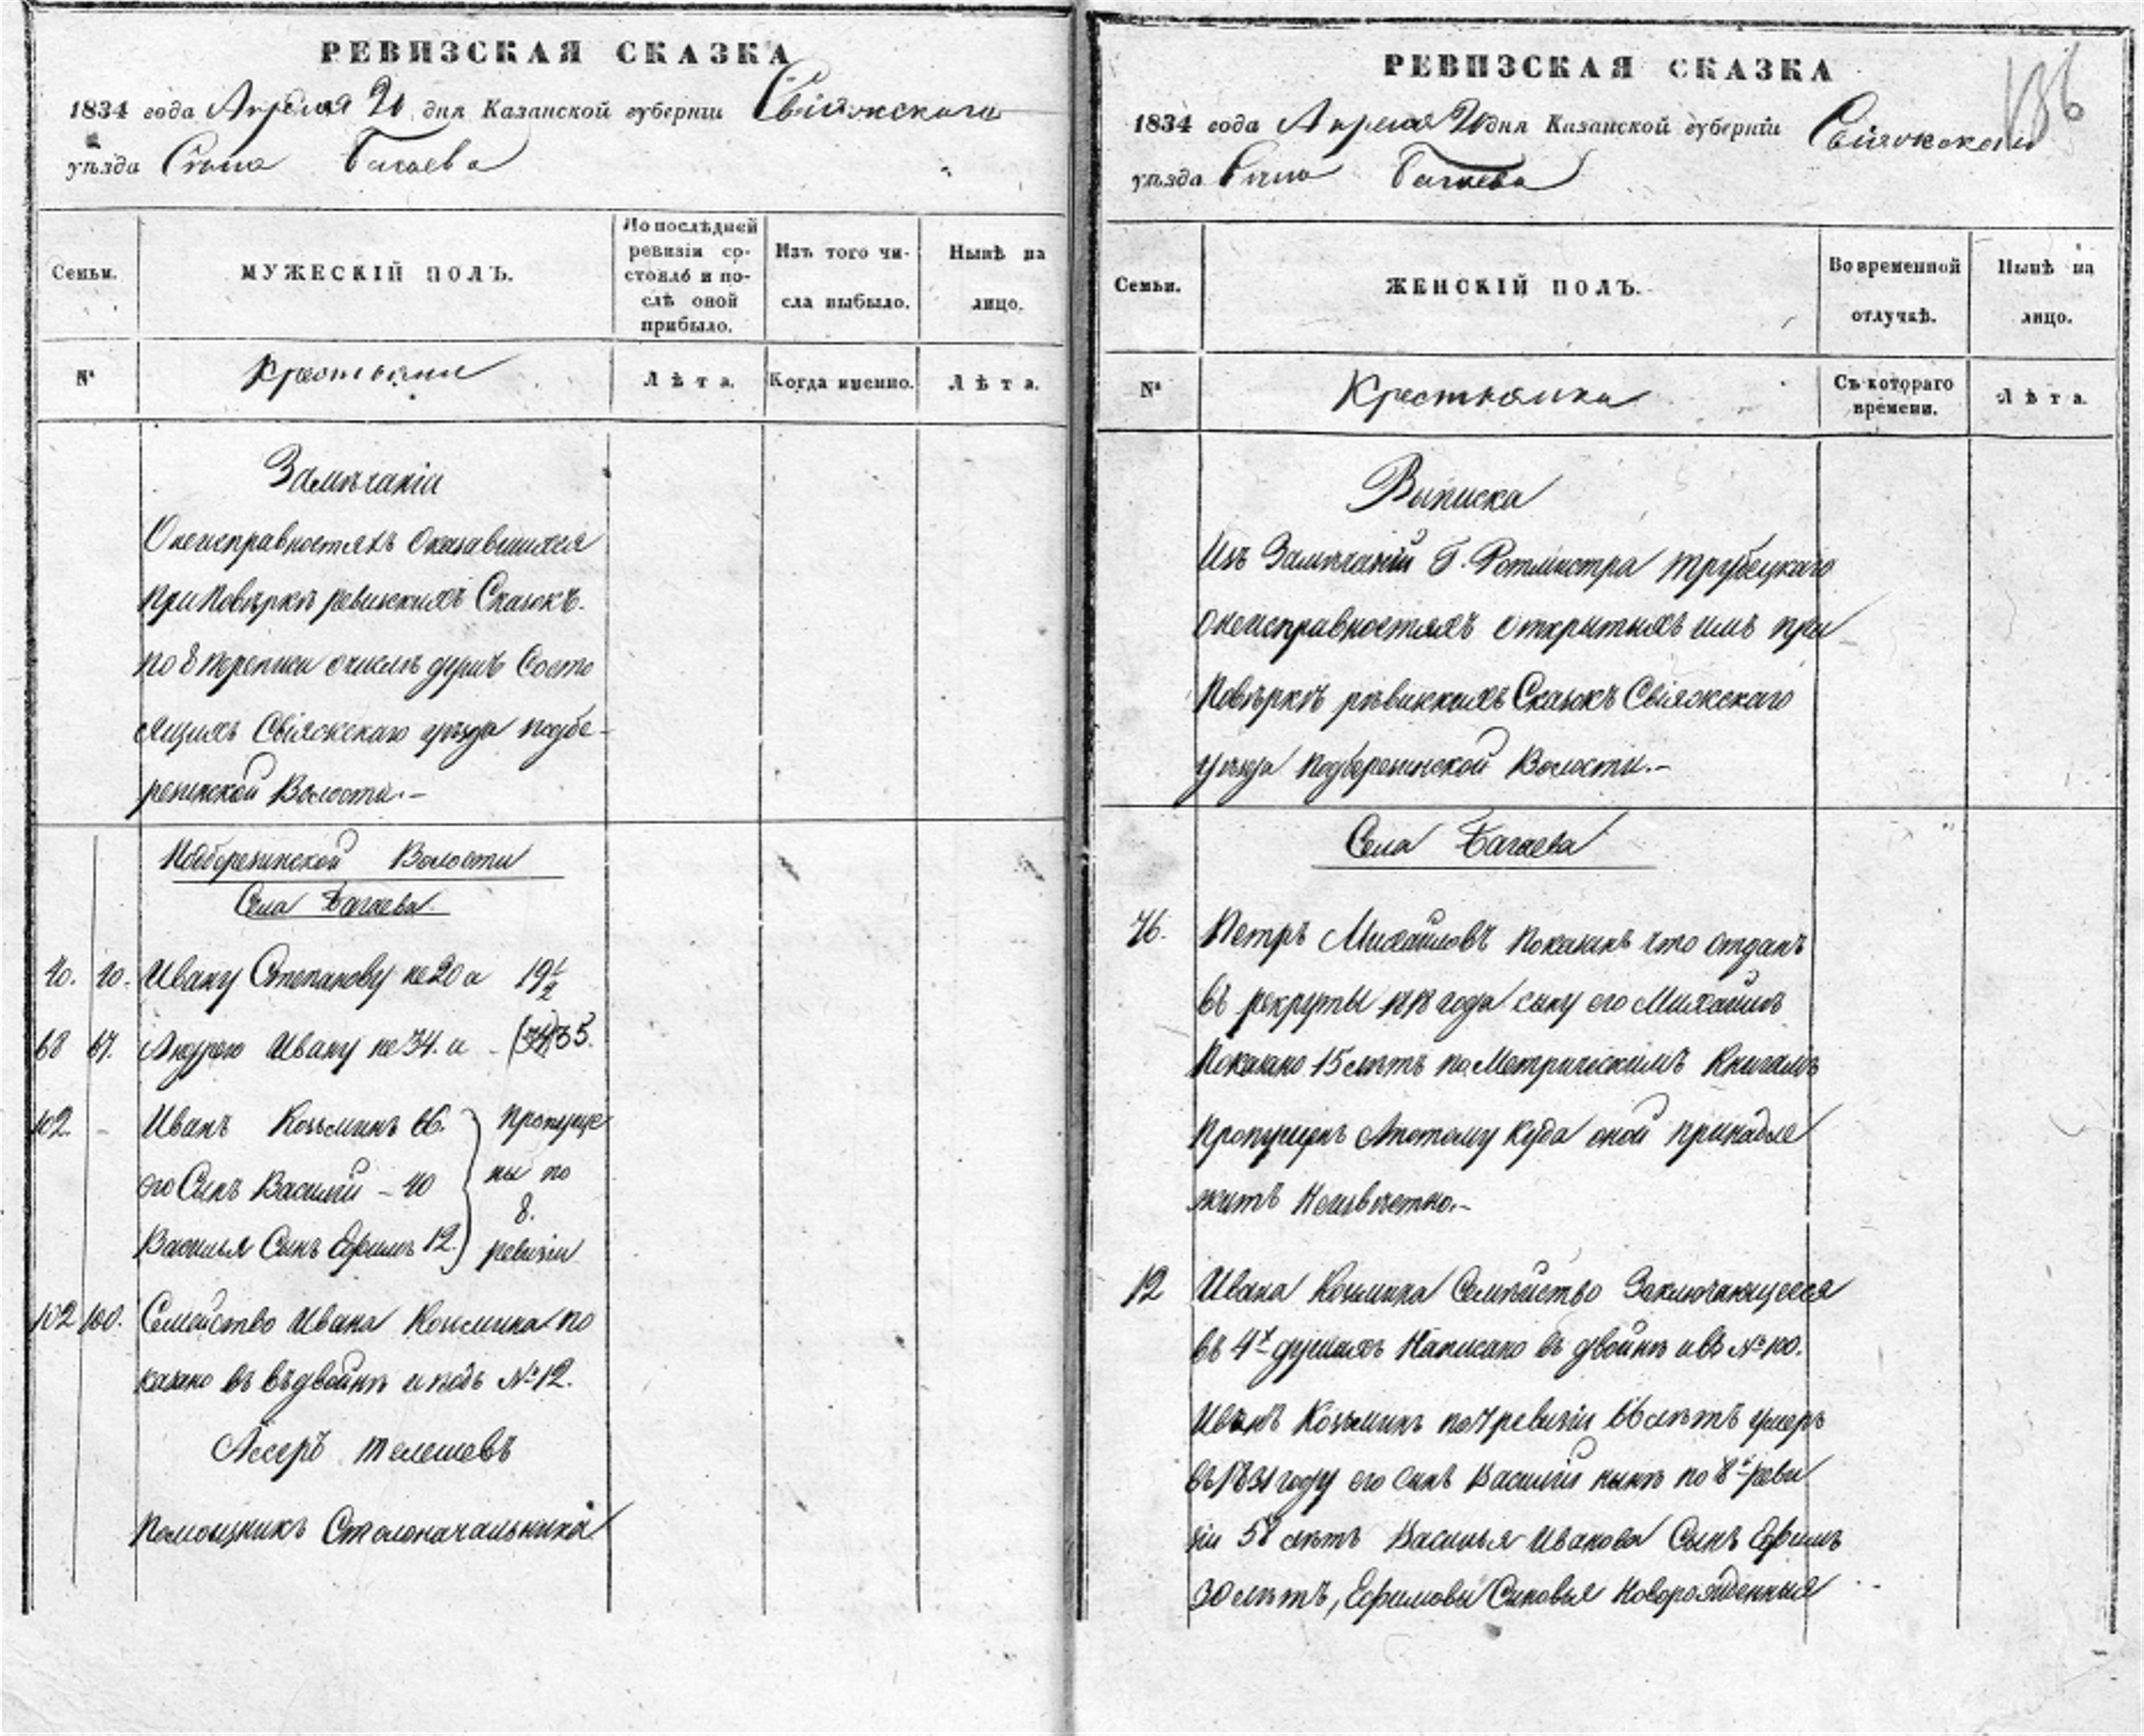 РЕВИЗСКАЯ СКАЗКА
1834 года Апреля 20 дня Казанской губерніи Свіяжскаго
уѣзда Села Багаева
Семьи.
МУЖЕСКІЙ ПОЛЪ.
По послѣдней
ревизіи со-
стояло и по-
слѣ оной
прибыло.
Изъ того чи-
сла выбыло.
Нынѣ на
лицо.
№
Крестьяни
Лѣта.
Когда именно.
Лѣта.
Замѣчаніи
О неисправностяхъ Оказавшихся
при Повѣркѣ ревизскихъ Сказокъ.
по 8 переписи о числѣ душъ Состо
ящихъ Свіяжскаго уѣзда подбе-
резинской Волости.-
Подберезинской Волости
Села Багаева
40. 40. Ивану Степанову не 20 а 19 1/2
68 67. Андрею Ивану не 34. а - (34) 35.
102. - Иванъ Козьминъ 66. пропуще
его Сынъ Василій - 40 ны по
8.
Василья Сынъ Ефимъ 12. ревизіи
102 100. Семейство Ивана Козьмина по
казано въ въдвойнѣ и подъ № 12.
Ассеръ телешевъ
Помощникъ Столоначальника
РЕВИЗСКАЯ СКАЗКА
186
1834 года Апреля 20 дня Казанской губерніи Свіяжскаго
уѣзда Села Багаева
Семьи.
ЖЕНСКІЙ ПОЛЪ.
Во временной
отлучкѣ.
Нынѣ на
лицо.
№
Крестьянка
Съ котораго
времени.
Лѣта.
Выписка
Изъ Замѣчаній Г. Ротмистра трубецкаго
о неисправностяхъ открытыхъ имъ при
Повѣркѣ рѣвизкихъ Сказокъ Свіяжскаго
уѣзда подберезинской Волости.-
Села Багаева
76. Петръ Михайловъ показанъ что отданъ
въ рекруты 1818 года сыну его Михайлѣ
Показано 15 лѣтъ по Метрическимъ Книгамъ
Пропущенъ Апотому куда оной принадле
житъ Неизвѣстно.-
12 Ивана Козьмина Семѣйство Заключающееся
въ 4х душахъ Написано въ двойнѣ и въ № 100.
Иванъ Козьминъ по 7 ревизіи 66 лѣтъ умеръ
въ 1831 году его сынъ Василій нынѣ по 8й реви
зіи 58 лѣтъ Василья Иванова Сынъ Ефимъ
30 лѣтъ, Ефимовы Сыновья Новорожденныя